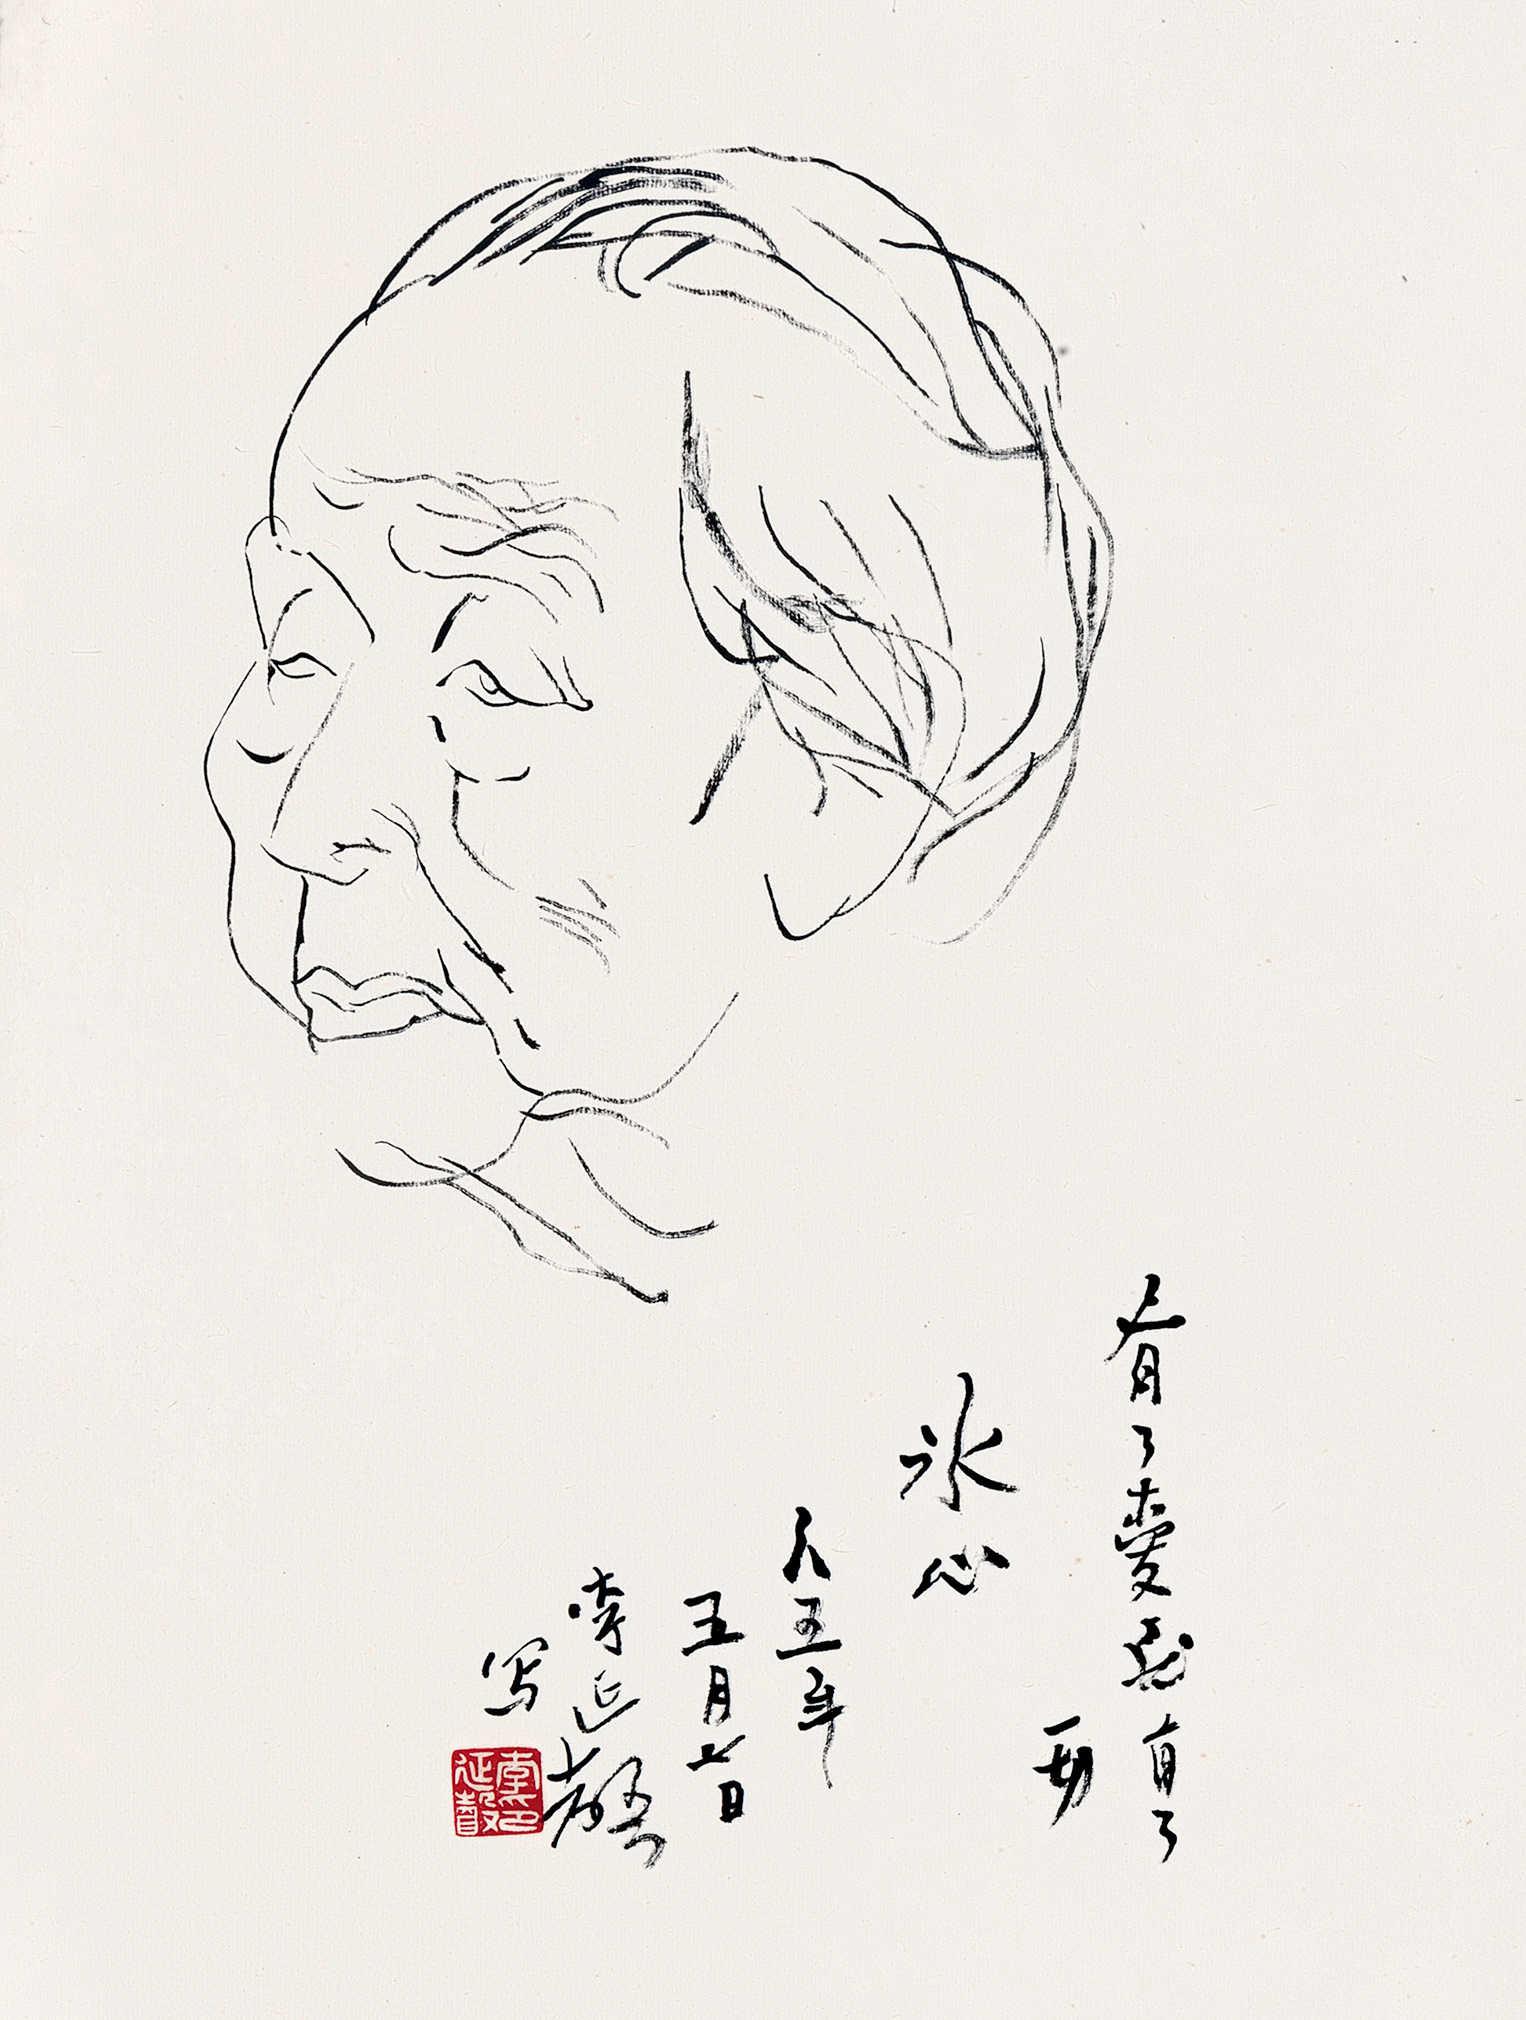 有了愛就有了
一切
冰心
八五年
五月七日
李延聲
写
李印延聲